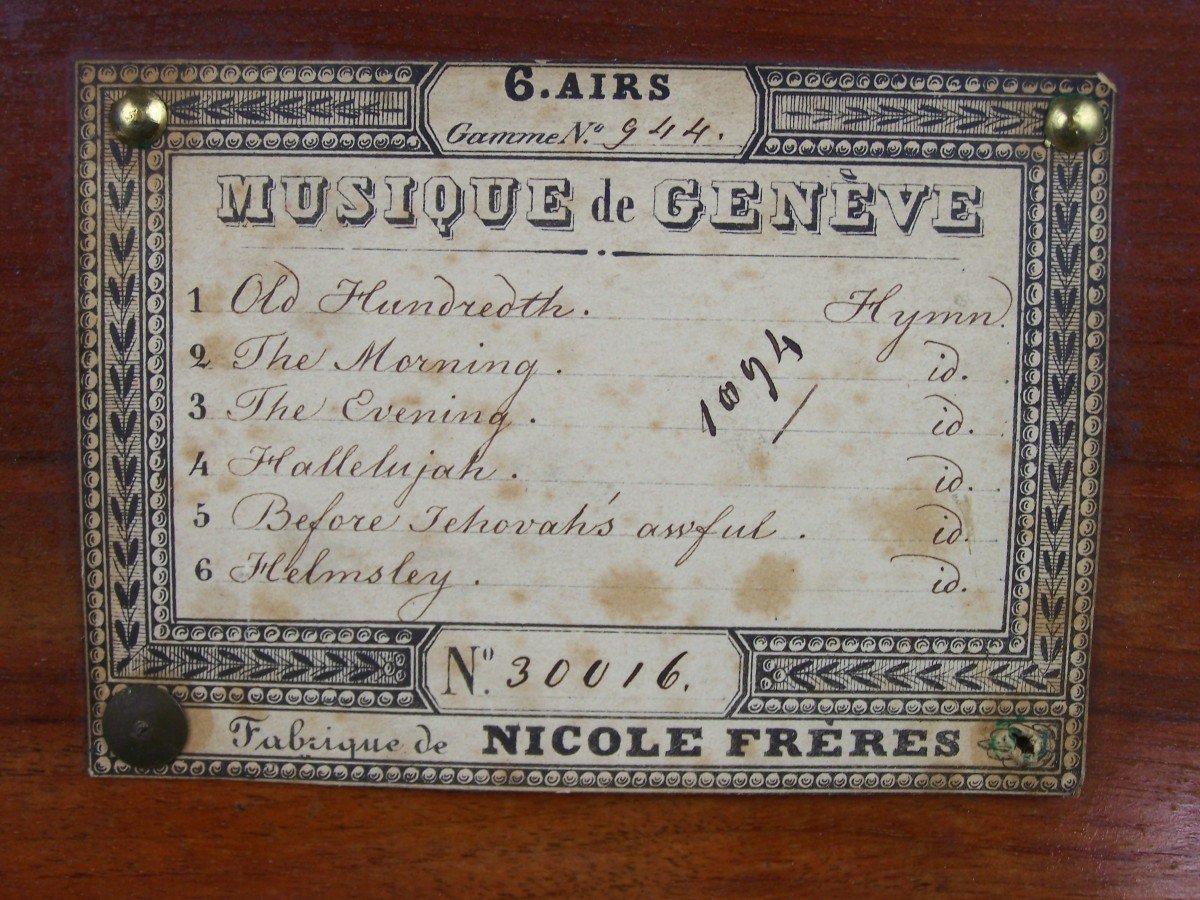 6. AIRS
Gamme Nº 944.
MUSIQUE de GENÈVE
1 Old Hundredth. Hymn.
2 The Morning. id.
3 The Evening. id.
1094
4 Hallelujah. id.
5 Before Jehovah's awful. id.
6 Helmsley. id.
Nº. 30016.
Fabrique de NICOLE FRÈRES